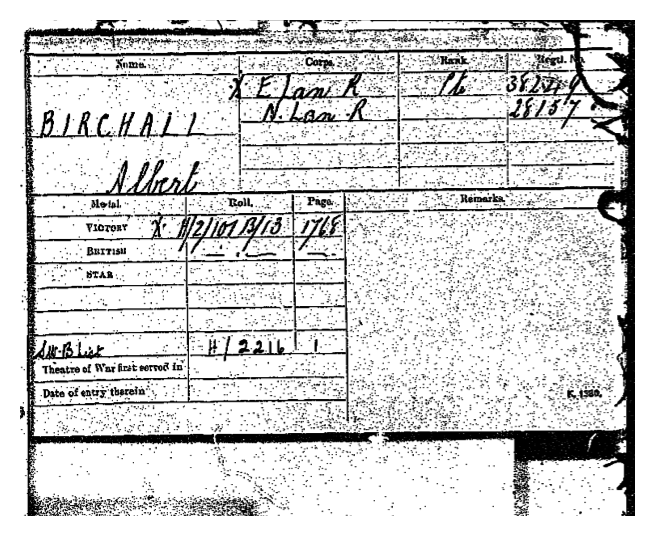 Name. Corps. Rank. Regtl. No.
X E. Lan R Pte 38249
BIRCHALL N. Lan R 28157
Albert
Medal. Roll. Page. Remarks.
VICTORY X. H/2/107 B/13 1768
BRITISH —.—.— —.—
STAR
S.W.B List H/2216 1
Theatre of War first served in
Date of entry therein
K. 1380.